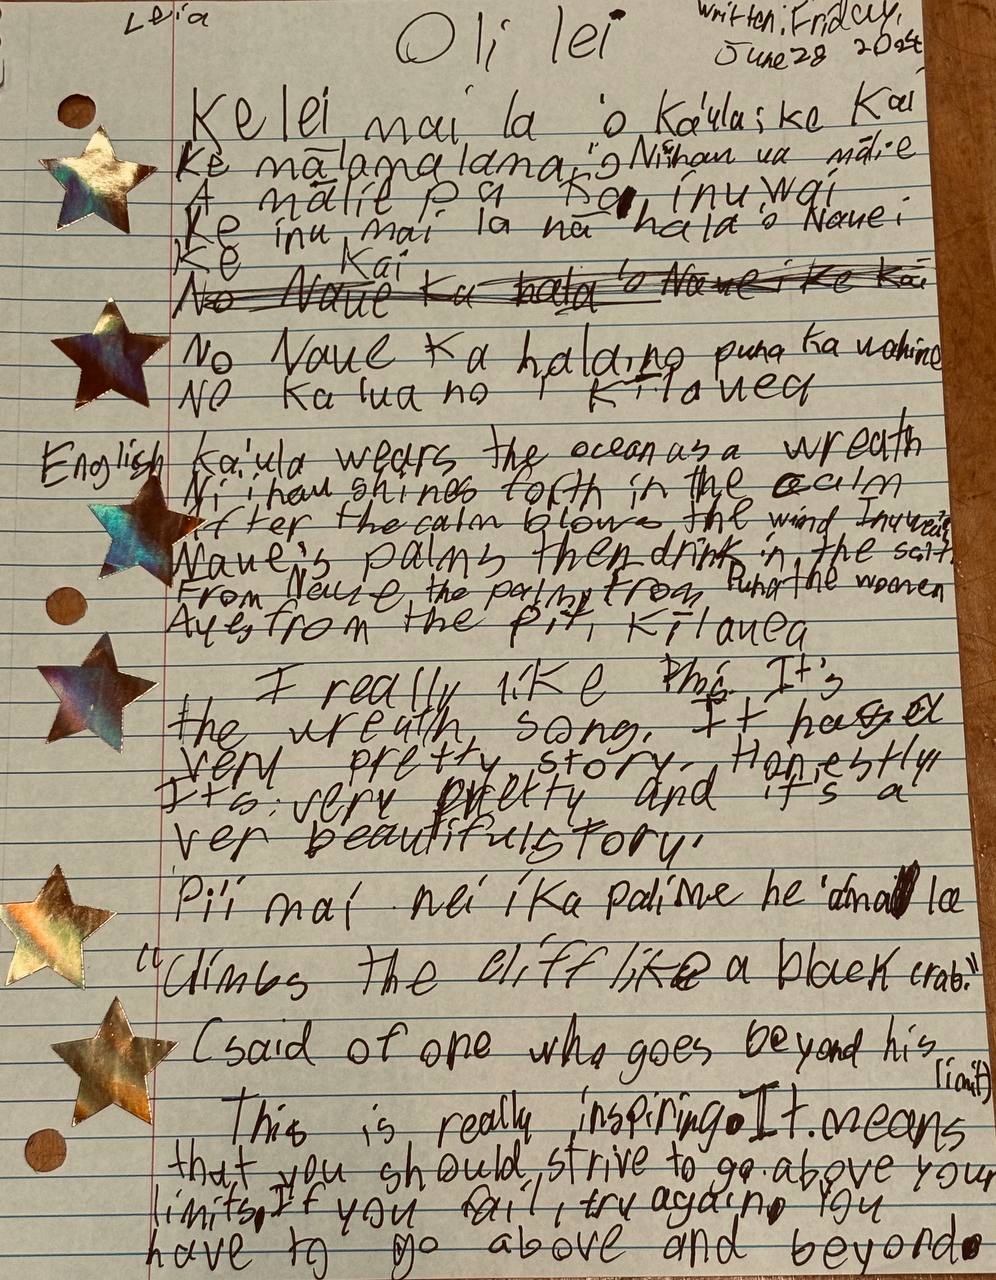 Leia
Oli lei
Written: Friday,
June 28 2024
Ke lei mai la 'o Ka'ula i ke Kai
Ke mālamalama 'o Niihau ua mālie
A mālie pa Ka inuwai
Ke inu mai la nā hala 'o Naue i
Ke Kai
No Naue Ka hala 'o Naue i ke Kai
No Naue Ka hala, no puna ka wahine
No ka lua no i Kīlauea
English
Ka'ula wears the ocean as a wreath
Ni'ihau shines forth in the calm
After the calm blows the wind Inuwai
Naue's palms then drink in the salt
From Naue, the palm, from Puna the women
Aye, from the pit, Kīlauea
I really like this. It's
the wreath song. It has a
very pretty story. Honestly
It's very pretty and it's a
ver beautiful story.
Pii mai nei i ka pali me he 'ama la
"Climbs the cliff like a black crab."
(said of one who goes beyond his
limit)
This is really inspiring. It means
that you should strive to go above your
limits. If you fail, try again. You
have to go above and beyond.